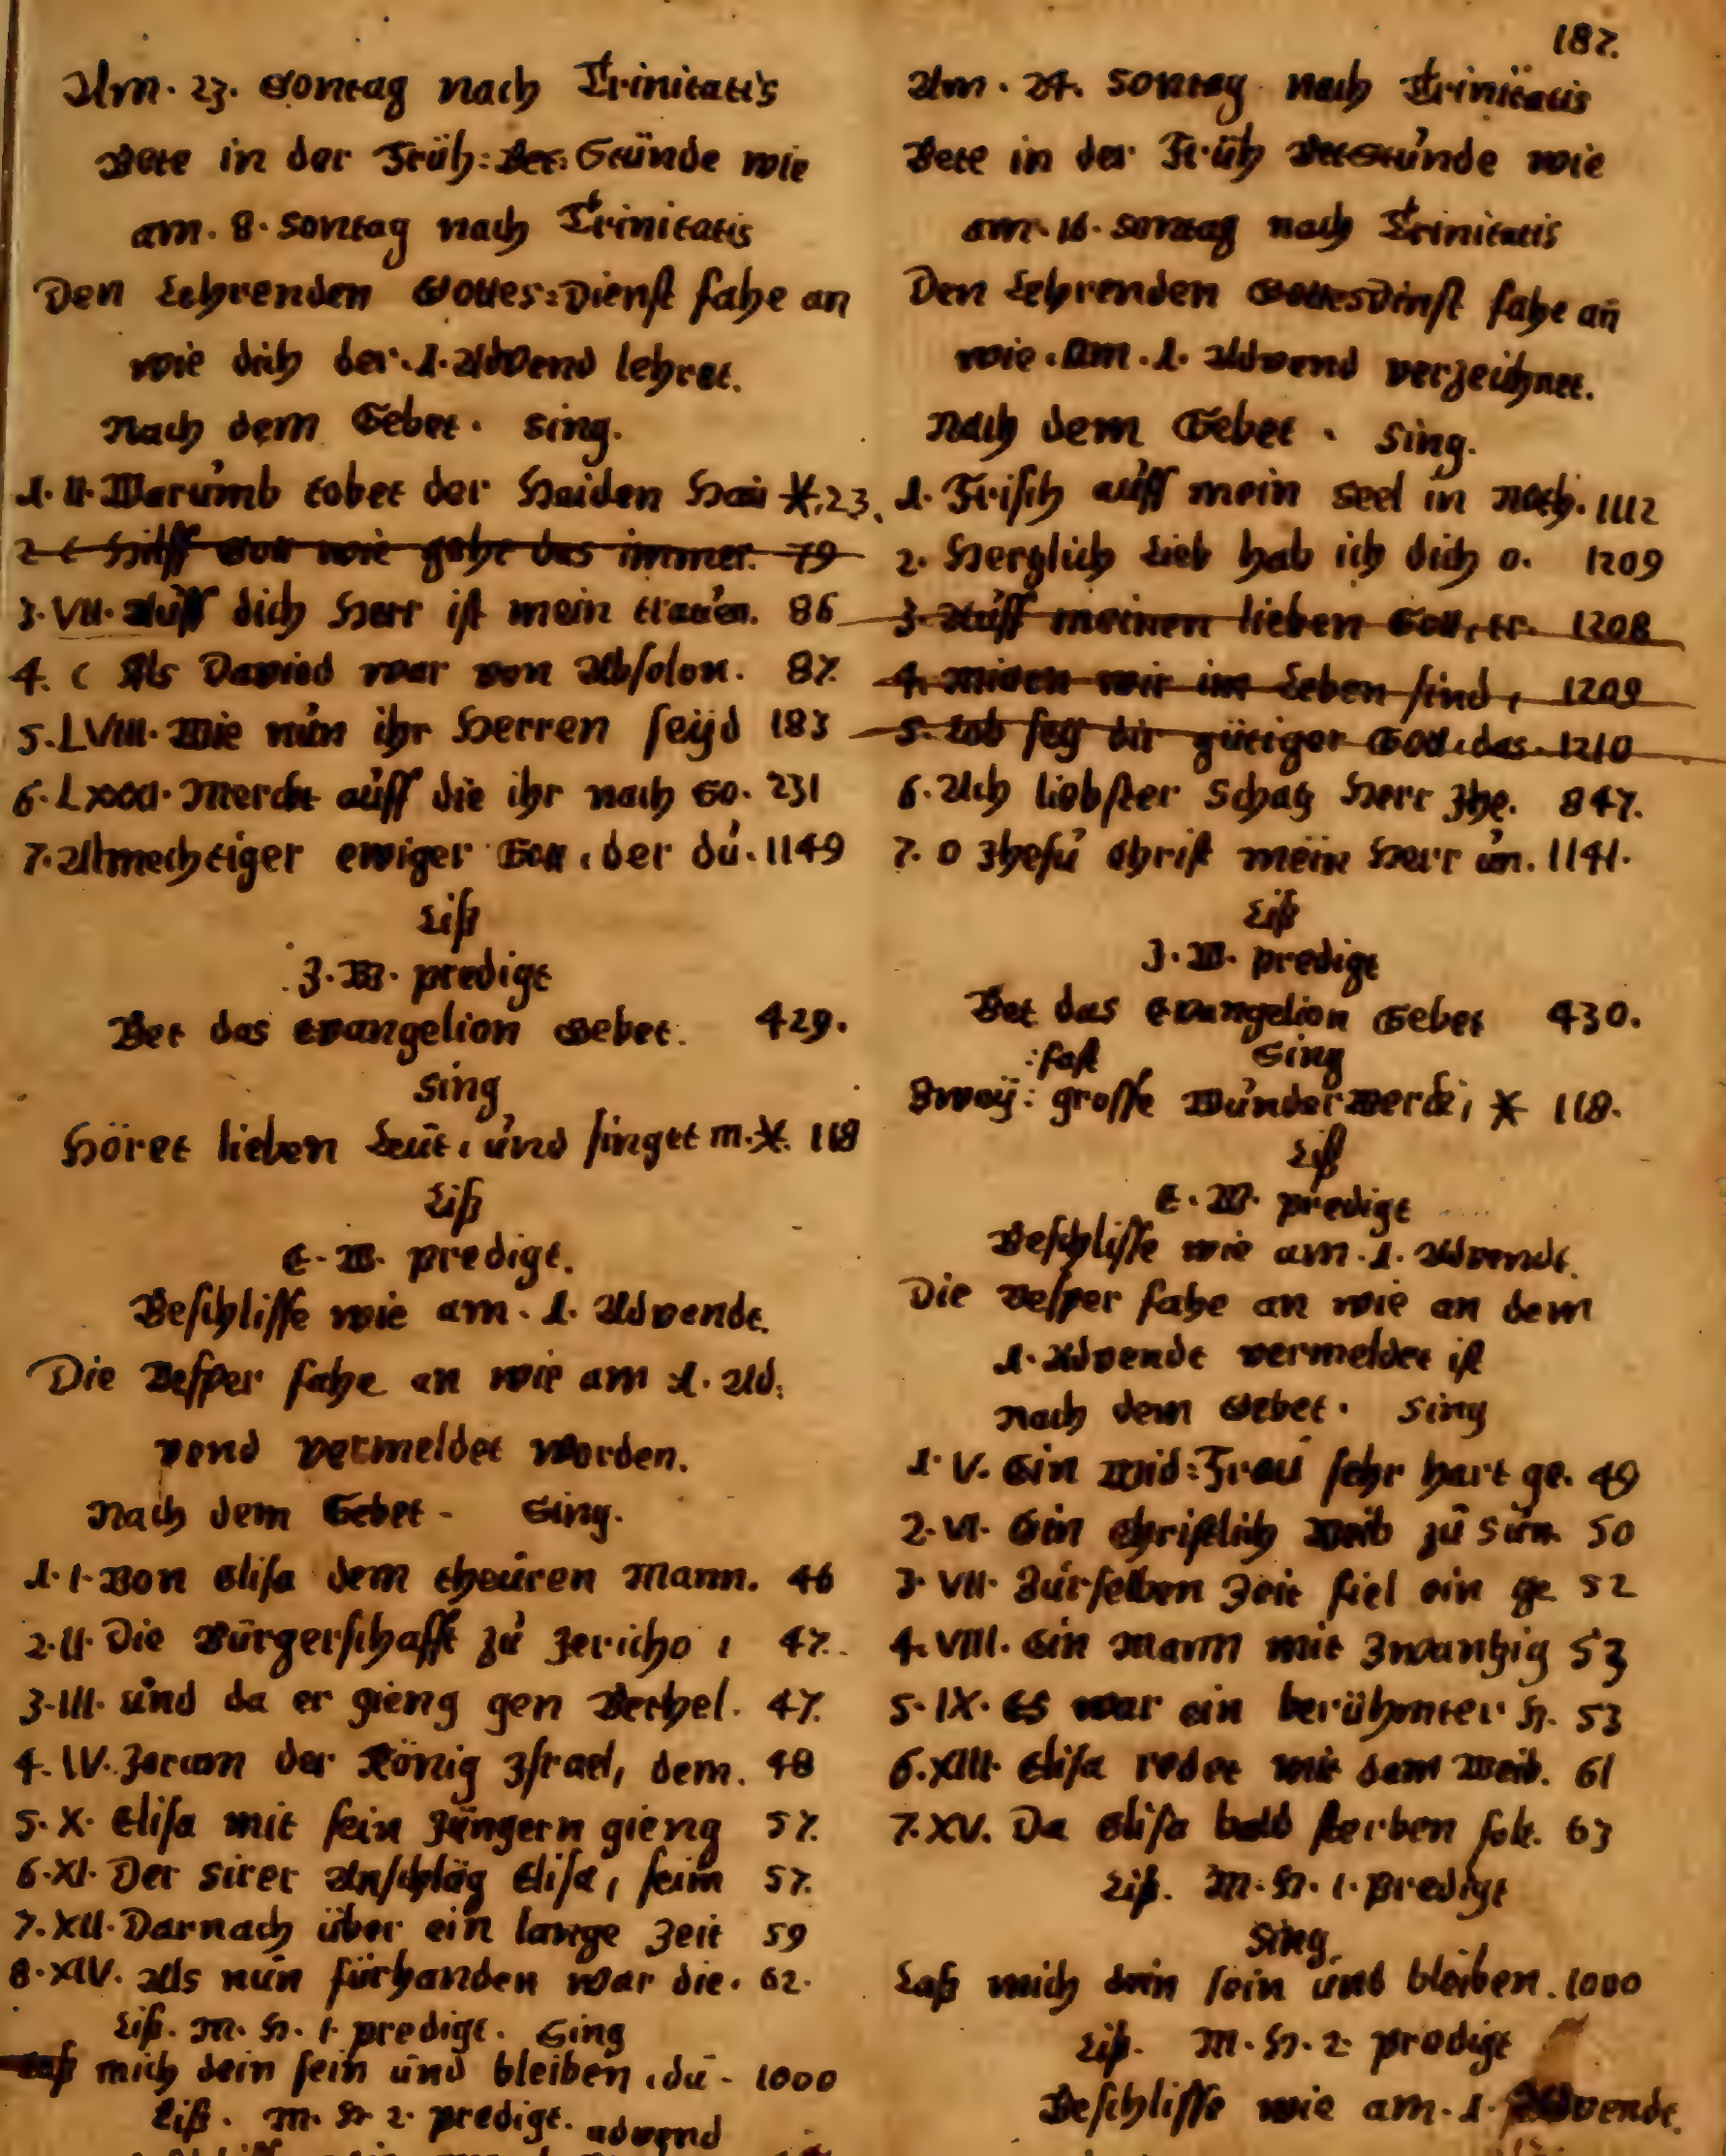 Am. 23. Sontag nach Trinitatis
Bete in der Früh: Bet: Stünde wie
am. 8. Sontag nach Trinitatis
Den Lehrenden Gottes=Dienst fahe an
wie dich der. 1. Advend lehret.
Nach dem Gebet. Sing.
1. II. Warumb tobet der Haiden Hau * 23.
2 Hilff Gott wie gehe das immer. 79
3. VII. Auff dich Herr ist mein trauen. 86
4. C Als David war von Absolon. 87.
5. LVIII. Wie nun ihr Herren seÿd 183
6. Merckt auff die ihr nach Go. 231
7. Allmechtiger ewiger Gott, der du. 1149
Liß
J. W. predigt
Bet das Evangelion Gebet. 429.
Sing
Höret lieben Leut, und singet m. * 118
Liß
E. W. predigt.
Beschlisse wie am. 1. Advende.
Die Vesper fahe an wie am 1. Ad:
vend vermeldet worden.
Nach dem Gebet - Sing.
1. I. Von Elisa dem theuren Mann. 46
2. II. Die Bürgerschafft zu Jericho, 47.
3. III. und da er gieng gen Bethel. 47.
4. IV. Joram der König Israel, dem. 48
5. X. Elisa mit sein Jüngern gieng 57.
6. XI. Der Sirer Anschläg Elisa, seim 57.
7. XII. Darnach über ein lange Zeit 59
8. XIV. Als nun fürhanden war die. 62.
Liß. M. H. 1. predigt. Sing
Laß mich dein sein und bleiben, du - 1000
Liß. M. H. 2. predigt.
advend
187.
Am. 24. Sontag nach Trinitatis
Bete in der Früh BetStunde wie
am. 16. Sontag nach Trinitatis
Den Lehrenden GottesDinst fahe an
wie. Am. 1. Advend verzeichnet.
Nach dem Gebet. Sing.
1. Frisch auff mein Seel in Noth. 1112
2. Herzlich Lieb hab ich dich o. 1209
3. Auff meinen lieben Gott, tr. 1208
4. Miten wir im Leben sind, 1209
5. Lob seÿ dir gütiger Gott, das. 1210
6. Ach liebster Schatz Herr Jhe. 847.
7. O Jhesu Christ mein Herr un. 1141.
Liß
J. W. predigt
Bet das Evangelion Gebet 430.
:fast Sing
Zweÿ: grosse Wunderwerck, * 118.
Liß
E. W. predigt
Beschlisse wie am. 1. Advendt.
Die Vesper fahe an wie an dem
1. Advendt vermeldet ist
Nach dem Gebet. Sing
1. V. Ein Wid=Frau sehr hart ge. 49
2. VI. Ein Christlich Weib zu Sun. 50
3. VII. Zurselben Zeit fiel ein ge 52
4. VIII. Ein Mann mit Zwantzig 53
5. IX. Es war ein berühmter H. 53
6. XIII. Elisa redet mit dem Weib. 61
7. XV. Da Elisa bald sterben solt. 63
Liß. M. H. 1. Predigt
Sing
Laß mich dein sein und bleiben. 1000
Liß. M. H. 2. predigt
Beschlisse wie am. 1. Advende.